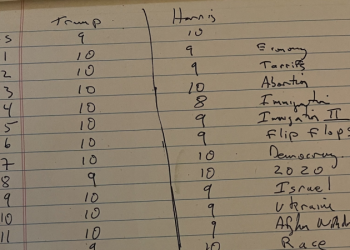 Trump Harris
S 9 10
1 10 9 Economy
2 10 9 Tarrifs
3 10 10 Abortion
4 10 8 Immigration
5 10 9 Immigration II
6 10 9 Flip Flops
7 10 10 Democracy
8 9 10 2020
9 10 9 Israel
10 10 9 Ukraine
11 10 9 Afghn
9 10 Race